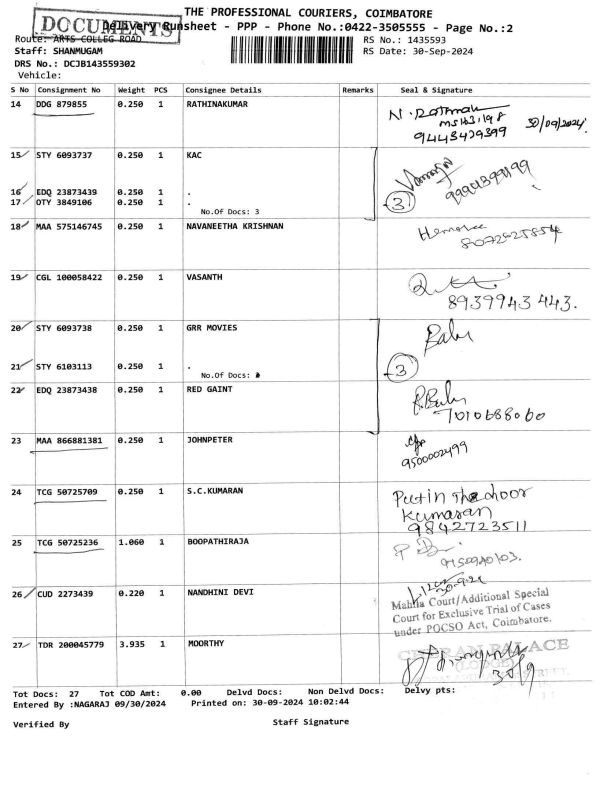 THE PROFESSIONAL COURIERS, COIMBATORE
DOCUMENTS
Delivery Runsheet - PPP - Phone No.:0422-3505555 - Page No.:2
Route: ARTS COLLEG ROAD
RS No.: 1435593
Staff: SHANMUGAM
RS Date: 30-Sep-2024
DRS No.: DCJB143559302
Vehicle:
S No Consignment No Weight PCS Consignee Details Remarks Seal & Signature
14 DDG 879855 0.250 1 RATHINAKUMAR
30/09/2024
9443429399
15 STY 6093737 0.250 1 KAC
16 EDQ 23873439 0.250 1 .
17 OTY 3849106 0.250 1 .
3
No.Of Docs: 3
18 MAA 575146745 0.250 1 NAVANEETHA KRISHNAN
19 CGL 100058422 0.250 1 VASANTH
8939943 443.
20 STY 6093738 0.250 1 GRR MOVIES
Babu
21 STY 6103113 0.250 1 .
3
No.Of Docs:
22 EDQ 23873438 0.250 1 RED GAINT
R.Babu
7010688060
23 MAA 866881381 0.250 1 JOHNPETER
9500002499
24 TCG 50725709 0.250 1 S.C.KUMARAN
Put in The door
Kumaran
9842723511
25 TCG 50725236 1.060 1 BOOPATHIRAJA
26 CUD 2273439 0.220 1 NANDHINI DEVI
Mahila Court/Additional Special
Court for Exclusive Trial of Cases
under POCSO Act, Coimbatore.
27 TDR 200045779 3.935 1 MOORTHY
PALACE
30/9
Tot Docs: 27 Tot COD Amt: 0.00 Delvd Docs: Non Delvd Docs: Delvy pts:
Entered By :NAGARAJ 09/30/2024 Printed on: 30-09-2024 10:02:44
Verified By Staff Signature